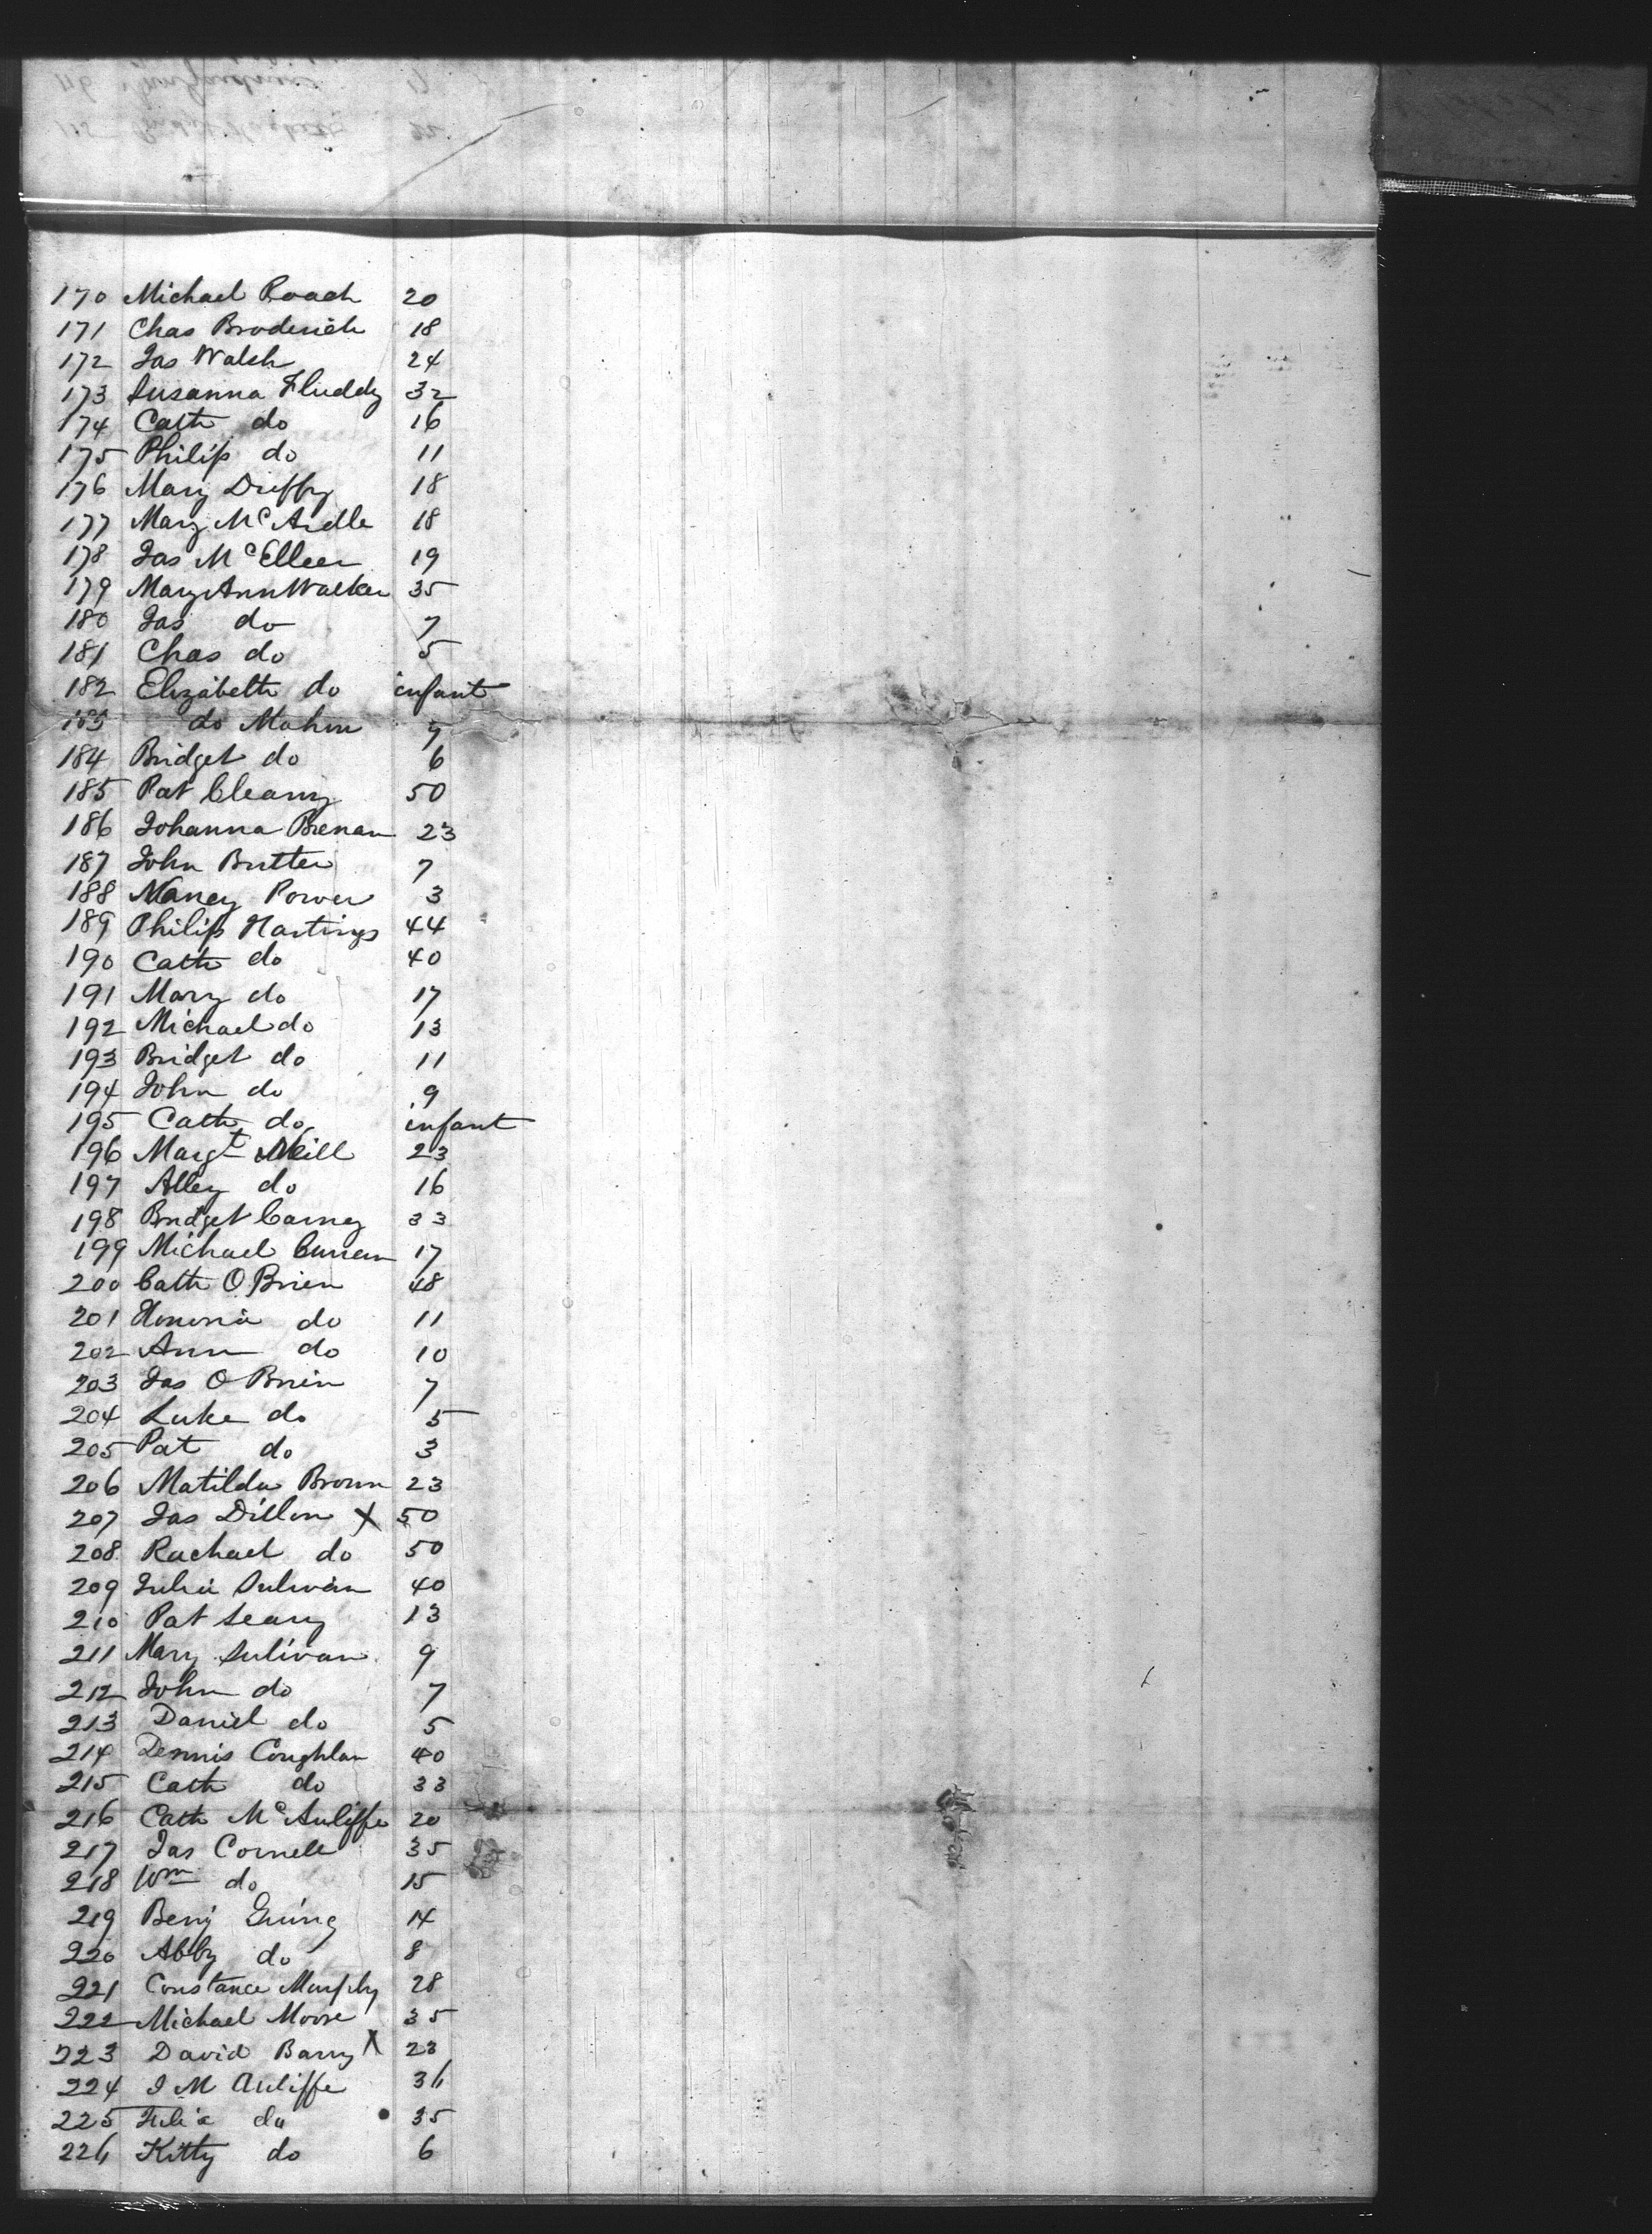 170 Michael Roach 20
171 Chas Broderick 18
172 Jas Walsh 24
173 Susanna Fluddy 32
174 Cath do 16
175 Philip do 11
176 Mary Duffy 18
177 Mary McArdle 18
178 Jas McElleer 19
179 Mary Ann Walker 35
180 Jas do 7
181 Chas do 5
182 Elizabeth do infant
183 do Mahon
184 Bridget do 6
185 Pat Cleary 50
186 Johanna Brenan 23
187 John Butler 7
188 Nancy Power 3
189 Philip Hastings 44
190 Cath do 40
191 Mary do 17
192 Michael do 13
193 Bridget do 11
194 John do 9
195 Cath do infant
196 Margt Neill 23
197 Alley do 16
198 Bridget Carney 33
199 Michael Curran 17
200 Cath O Brien 48
201 Honoria do 11
202 Ann do 10
203 Jas O Brien 7
204 Luke do 5
205 Pat do 3
206 Matilda Brown 23
207 Jas Dillon X 50
208 Rachael do 50
209 Julia Sulivan 40
210 Pat Leary 13
211 Mary Sulivan 9
212 John do 7
213 Daniel do 5
214 Dennis Coughlan 40
215 Cath do 33
216 Cath McAuliffe 20
217 Jas Cornell 35
218 Wm do 15
219 Benj 14
220 Abby do 8
221 Constance Murphy 28
222 Michael Moore 35
223 David Barry X 23
224 J M Auliffe 36
225 Julia do 35
226 Kitty do 6